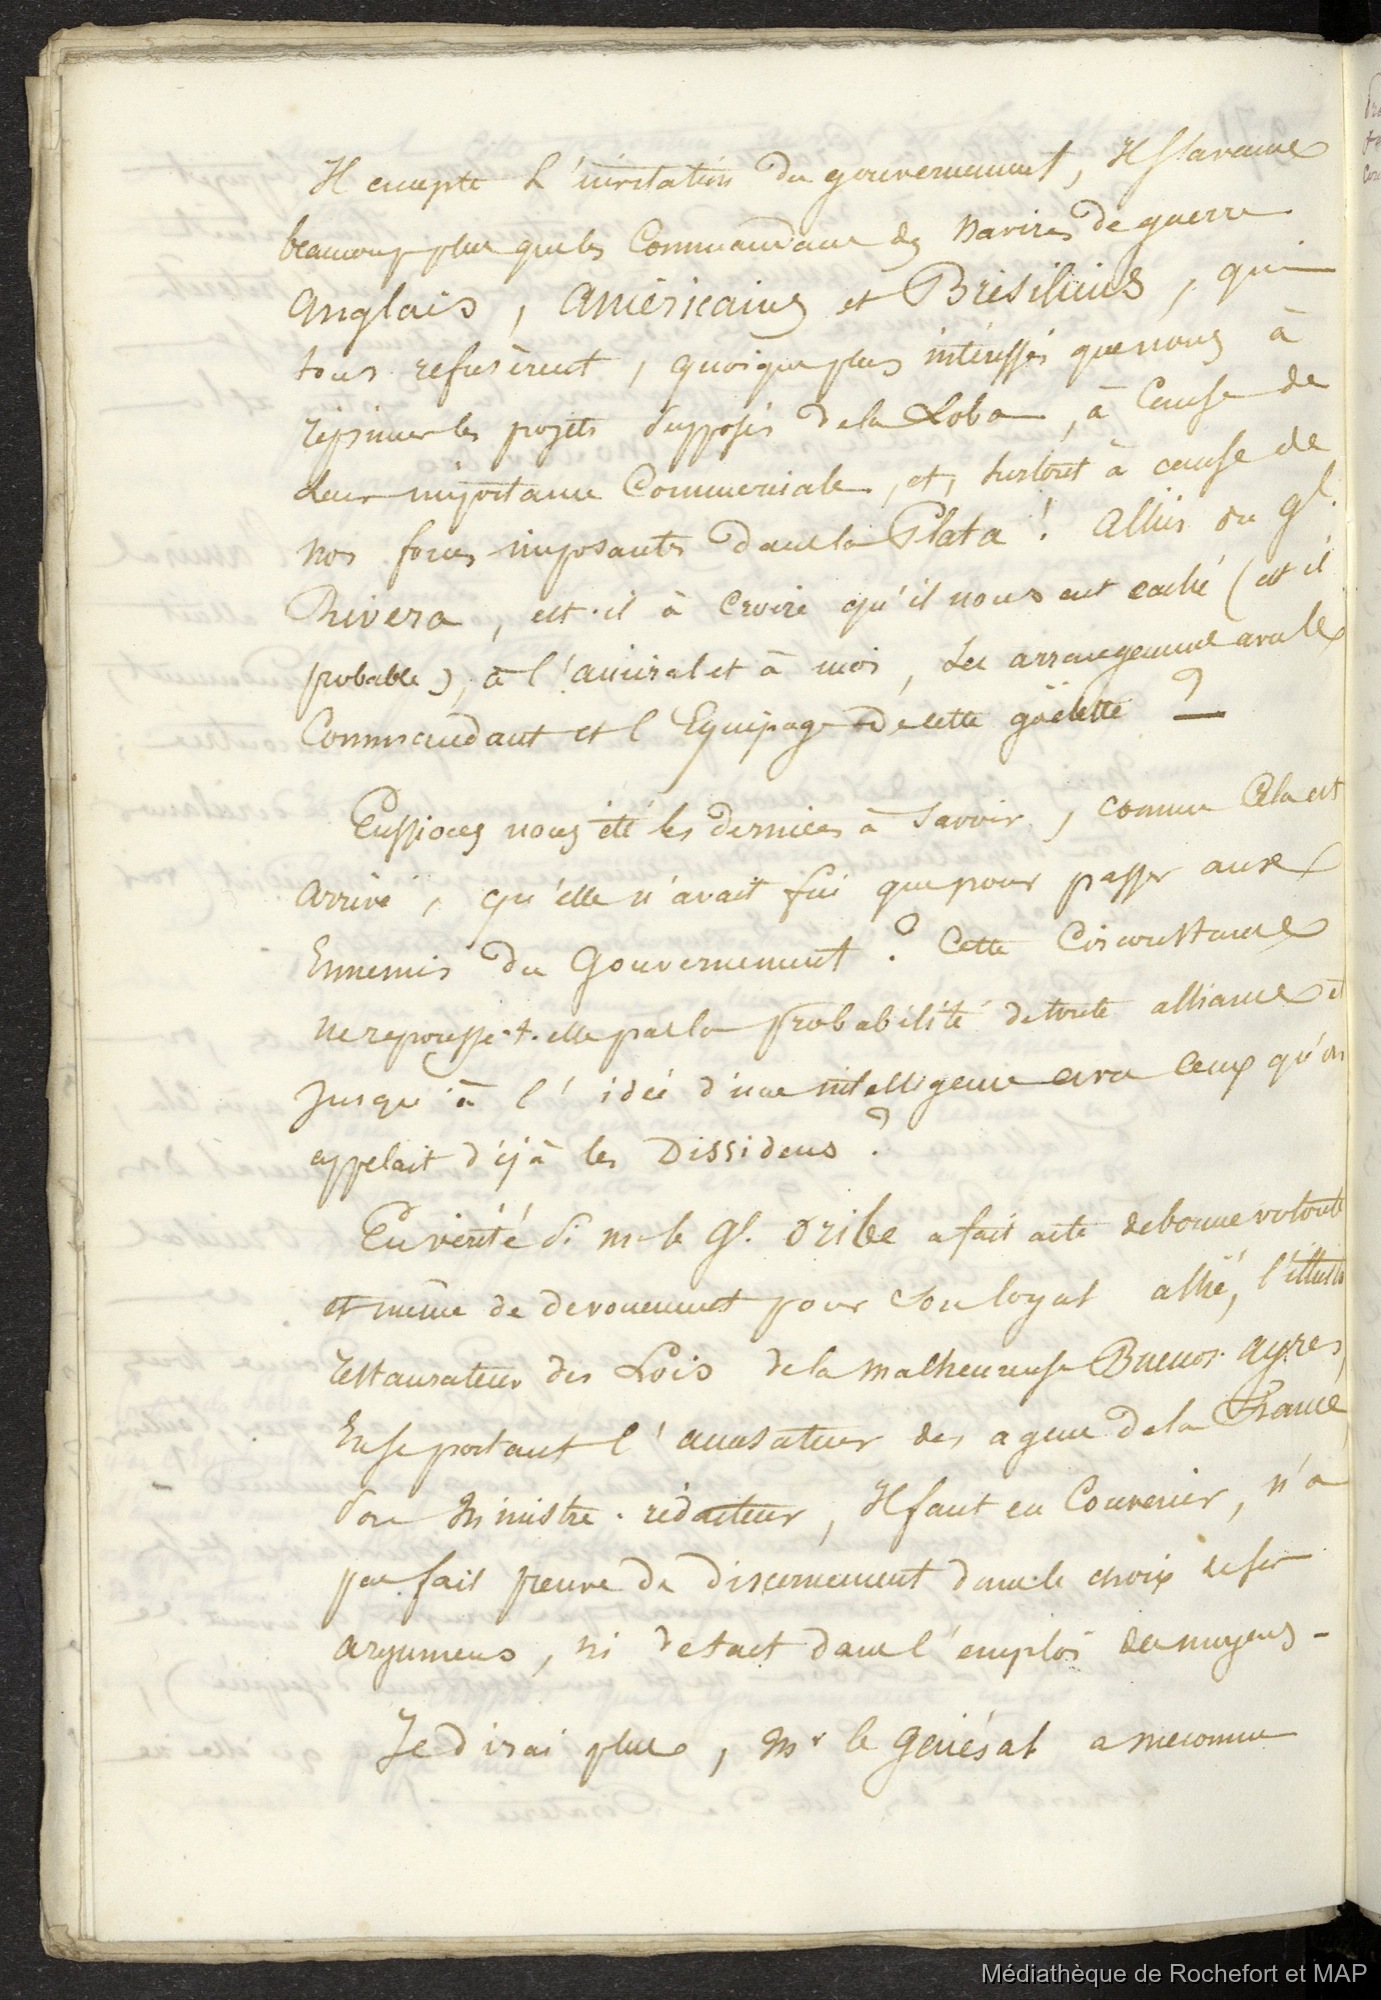 Il accepte l'invitation du gouvernement, Il s'avance
beaucoup plus que les Commandans des Navires de guerre
Anglais, Américains et Brésiliens, qui
tous refusèrent, quoique plus intéressés que nous à
réprimer les projets supposés de la Loba, à Cause de
leur importance Commerciale, et, surtout à cause de
nos forces imposantes dans la Plata! Alliés du Gl.
Rivera, est-il à croire qu'il nous eut caché (est il
probable), à l'amiral et à moi, ses arrangemens avec le
Commandant et l'Equipage de cette goëlette?
Eussions nous été les derniers à Savoir, comme Cela est
arrivé, qu'elle n'avait fui que pour passer aux
Ennemis du Gouvernement? Cette Circonstance
ne repousse-t-elle pas la probabilité de toute alliance et
Jusqu'à l'idée d'une intelligence avec Ceux qu'on
appelait déjà les Dissidens?
En vérité Si Mr le Gl. Oribe a fait acte de bonne volonté
et même de dévouement pour son loyal allié, l'illustre
restaurateur des Lois de la malheureuse Buenos-Ayres,
En se portant l'accusateur des agens de la France,
Son Ministre-rédacteur, Il faut en Convenir, n'a
pas fait preuve de discernement dans le choix de ses
argumens, ni de tact dans l'emploi des moyens -
Je dirai plus, Mr le Général a méconnu
Médiathèque de Rochefort et MAP